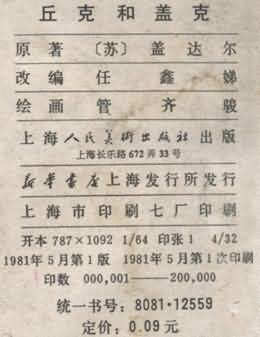 丘克和盖克
原著〔苏〕盖达尔
改编 任鑫娣
绘画 管齐骏
上海人民美術出版社出版
上海长乐路672弄33号
新华書店上海发行所发行
上海市印刷七厂印刷
开本 787×1092 1/64 印张 1 4/32
1981年5月第1版 1981年5月第1次印刷
印数 000,001——200,000
统一书号：8081·12559
定价：0.09元